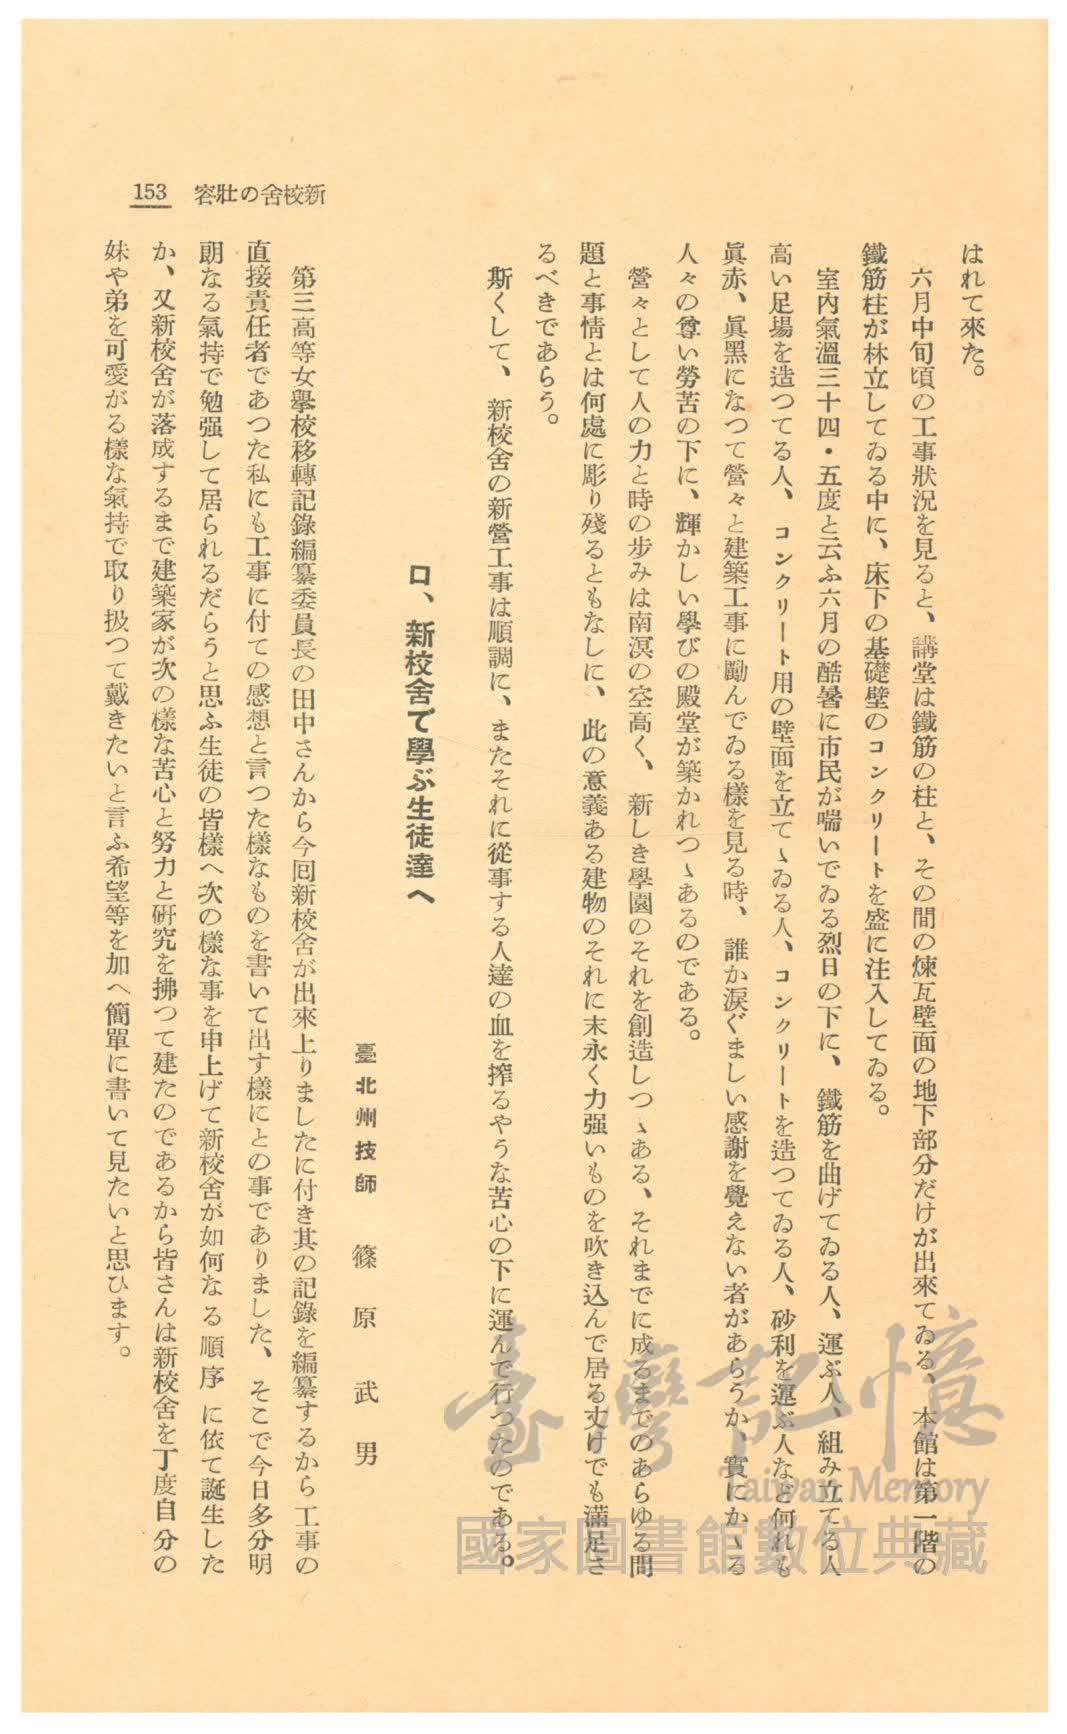 153 新校舍の壯容
はれて來た。
六月中旬頃の工事狀況を見ると、講堂は鐵筋の柱と、その間の煉瓦壁面の地下部分だけが出來てゐる、本館は第一階の
鐵筋柱が林立してゐる中に、床下の基礎壁のコンクリートを盛に注入してゐる。
室內氣溫三十四・五度と云ふ六月の酷暑に市民が喘いでゐる烈日の下に、鐵筋を曲げてゐる人、運ぶ人、組み立てる人
高い足場を造つてる人、コンクリート用の壁面を立てゝゐる人、コンクリートを造つてゐる人、砂利を運ぶ人など何れも
眞赤、眞黑になつて營々と建築工事に勵んでゐる樣を見る時、誰か淚ぐましい感謝を覺えない者があらうか、實にかゝる
人々の尊い勞苦の下に、輝かしい學びの殿堂が築かれつゝあるのである。
營々として人の力と時の步みは南溟の空高く、新しき學園のそれを創造しつゝある、それまでに成るまでのあらゆる問
題と事情とは何處に彫り殘るともなしに、此の意義ある建物のそれに末永く力强いものを吹き込んで居る丈けでも滿足さ
るべきであらう。
斯くして、新校舍の新營工事は順調に、またそれに從事する人達の血を搾るやうな苦心の下に運んで行つたのである。
ロ、新校舍で學ぶ生徒達へ
臺北州技師 篠原武男
第三高等女學校移轉記錄編纂委員長の田中さんから今囘新校舍が出來上りましたに付き其の記錄を編纂するから工事の
直接責任者であつた私にも工事に付ての感想と言つた樣なものを書いて出す樣にとの事でありました、そこで今日多分明
朗なる氣持で勉强して居られるだらうと思ふ生徒の皆樣へ次の樣な事を申上げて新校舍が如何なる順序に依て誕生した
か、又新校舍が落成するまで建築家が次の樣な苦心と努力と硏究を拂つて建たのであるから皆さんは新校舍を丁度自分の
妹や弟を可愛がる樣な氣持で取り扱つて戴きたいと言ふ希望等を加へ簡單に書いて見たいと思ひます。
臺灣記憶
Taiwan Memory
國家圖書館數位典藏